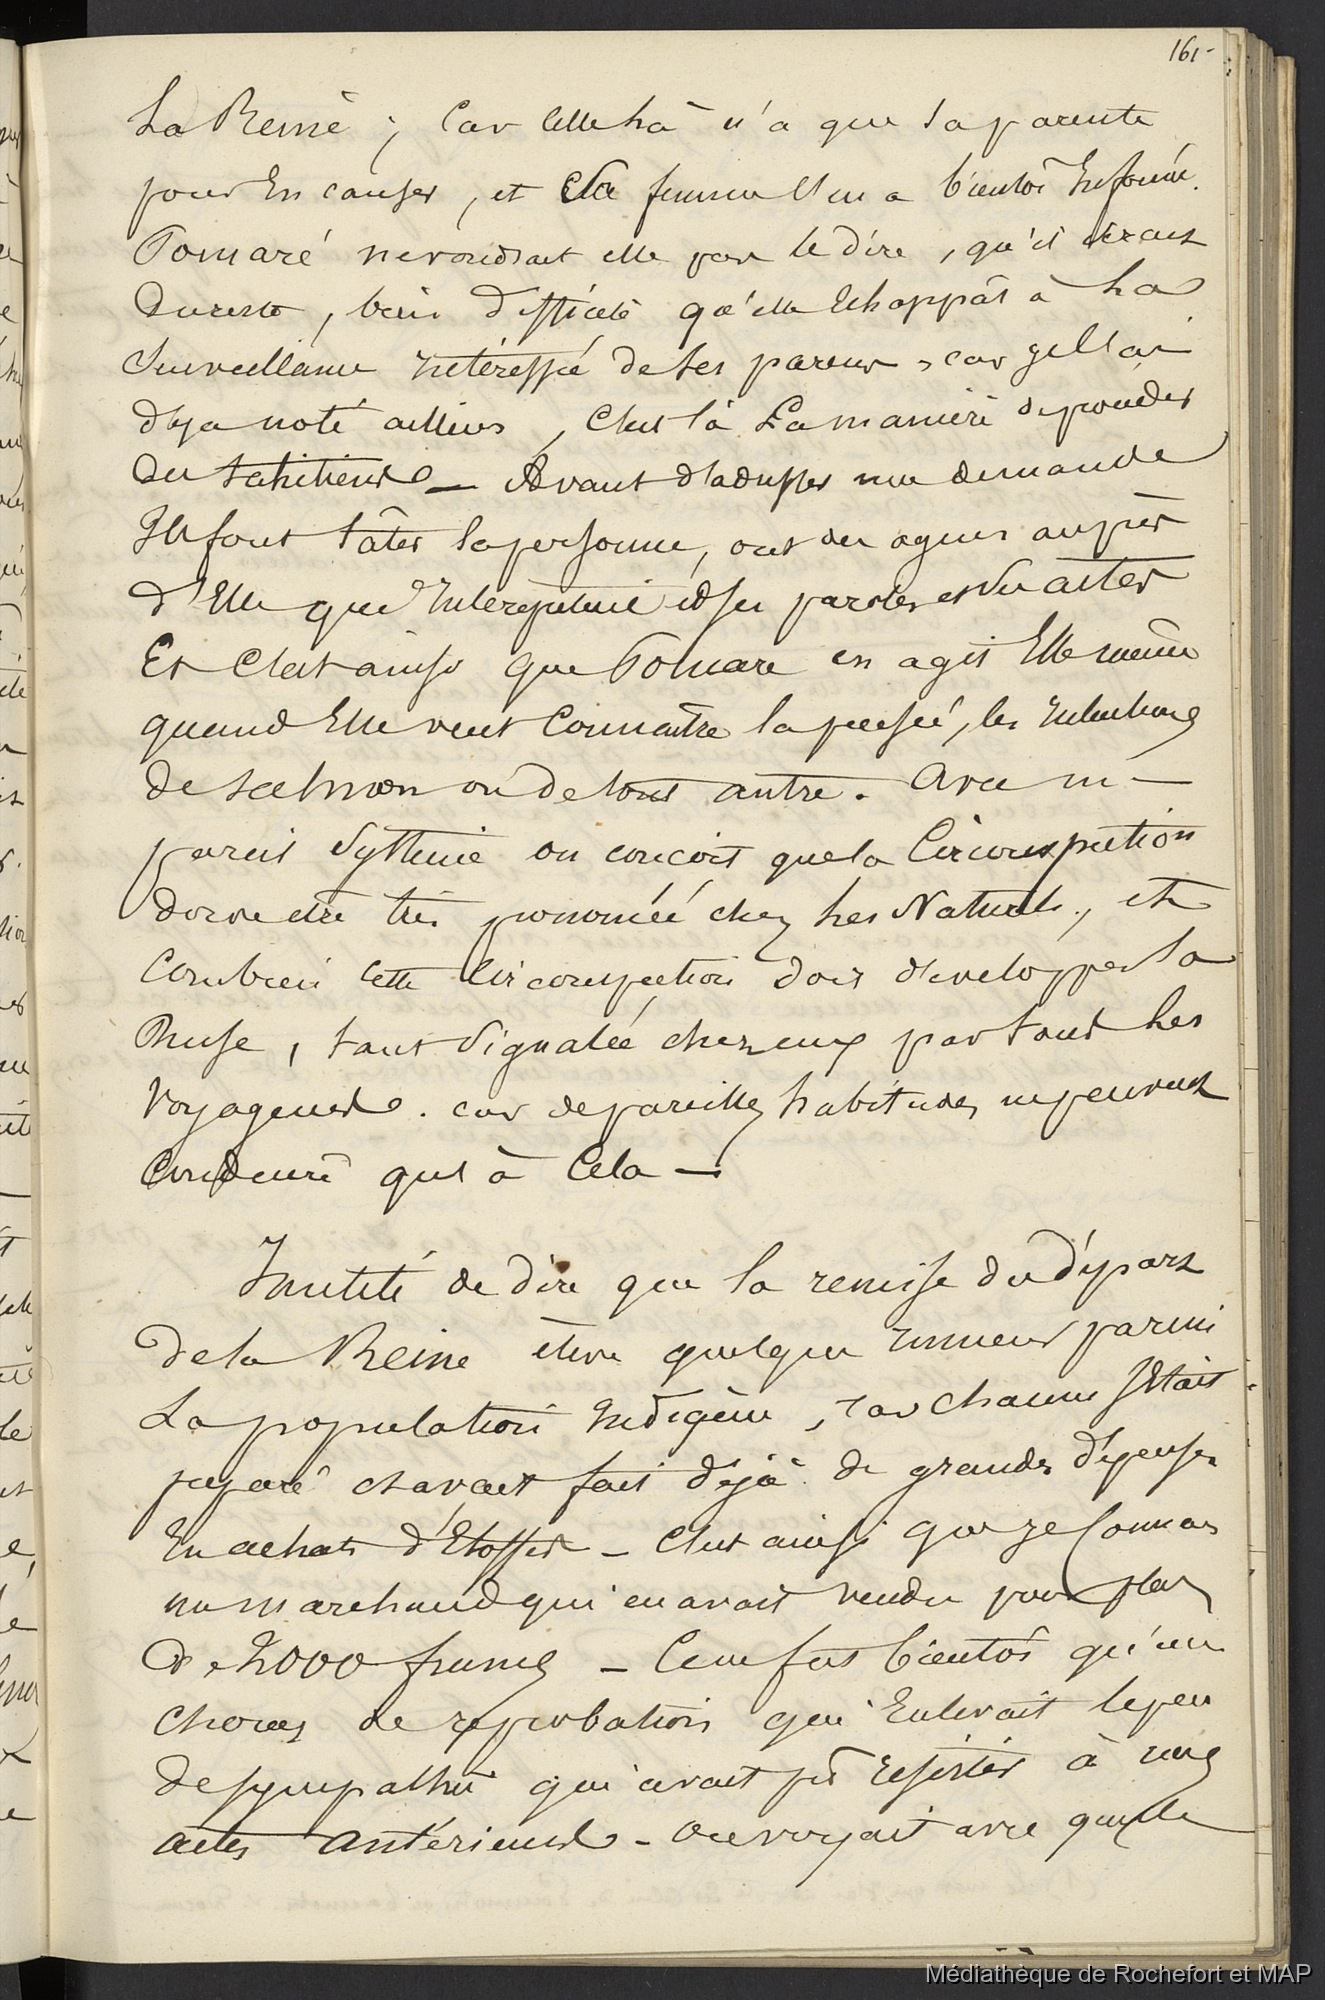 161-
La Reine ; Car celle là n'a que sa parente
pour en causer, et la femme S'en a bientôt Informée.
Pomaré ne voudrait elle pas le dire, qu'il serait
Dureste, bien difficile qu'elle Echappât à la
Surveillance Intéressée de ses parens, car je l'ai
déja noté ailleurs, C'est là La manière de procéder
des tahitiens — Avant d'adresser une demande
Ils font tâter la personne, ont des agens auprès
d'Elle qui Interprètent et ses paroles et Ses actes
Et C'est ainsi que Pomare en agit Elle même
quand Elle veut Connaître la pensée, les Intentions
de salmon ou de tout autre. Avec un —
pareil Système on conçoit que la Circonspection
doive être très prononcée chez les Naturels, et
Combien cette Circonspection doit développer la
Ruse, tant Signalée chez eux par tous les
Voyageurs. car de pareilles habitudes ne peuvent
Conduire qu'à Cela —
Inutile de dire que la remise du départ
de la Reine éleva quelque rumeur parmi
La population Indigène, car chacun S'Etait
préparé et avait fait déjà de grandes dépenses
En achats d'Etoffes — C'est ainsi que je connais
un marchand qui en avait vendu pour plus
de 2000 francs — Ce ne fut bientôt qu'un
chorus de réprobation qui Enlevait le peu
de sympathie qui avait pû résister à ses
actes antérieurs — On voyait avec quelle
Médiathèque de Rochefort et MAP